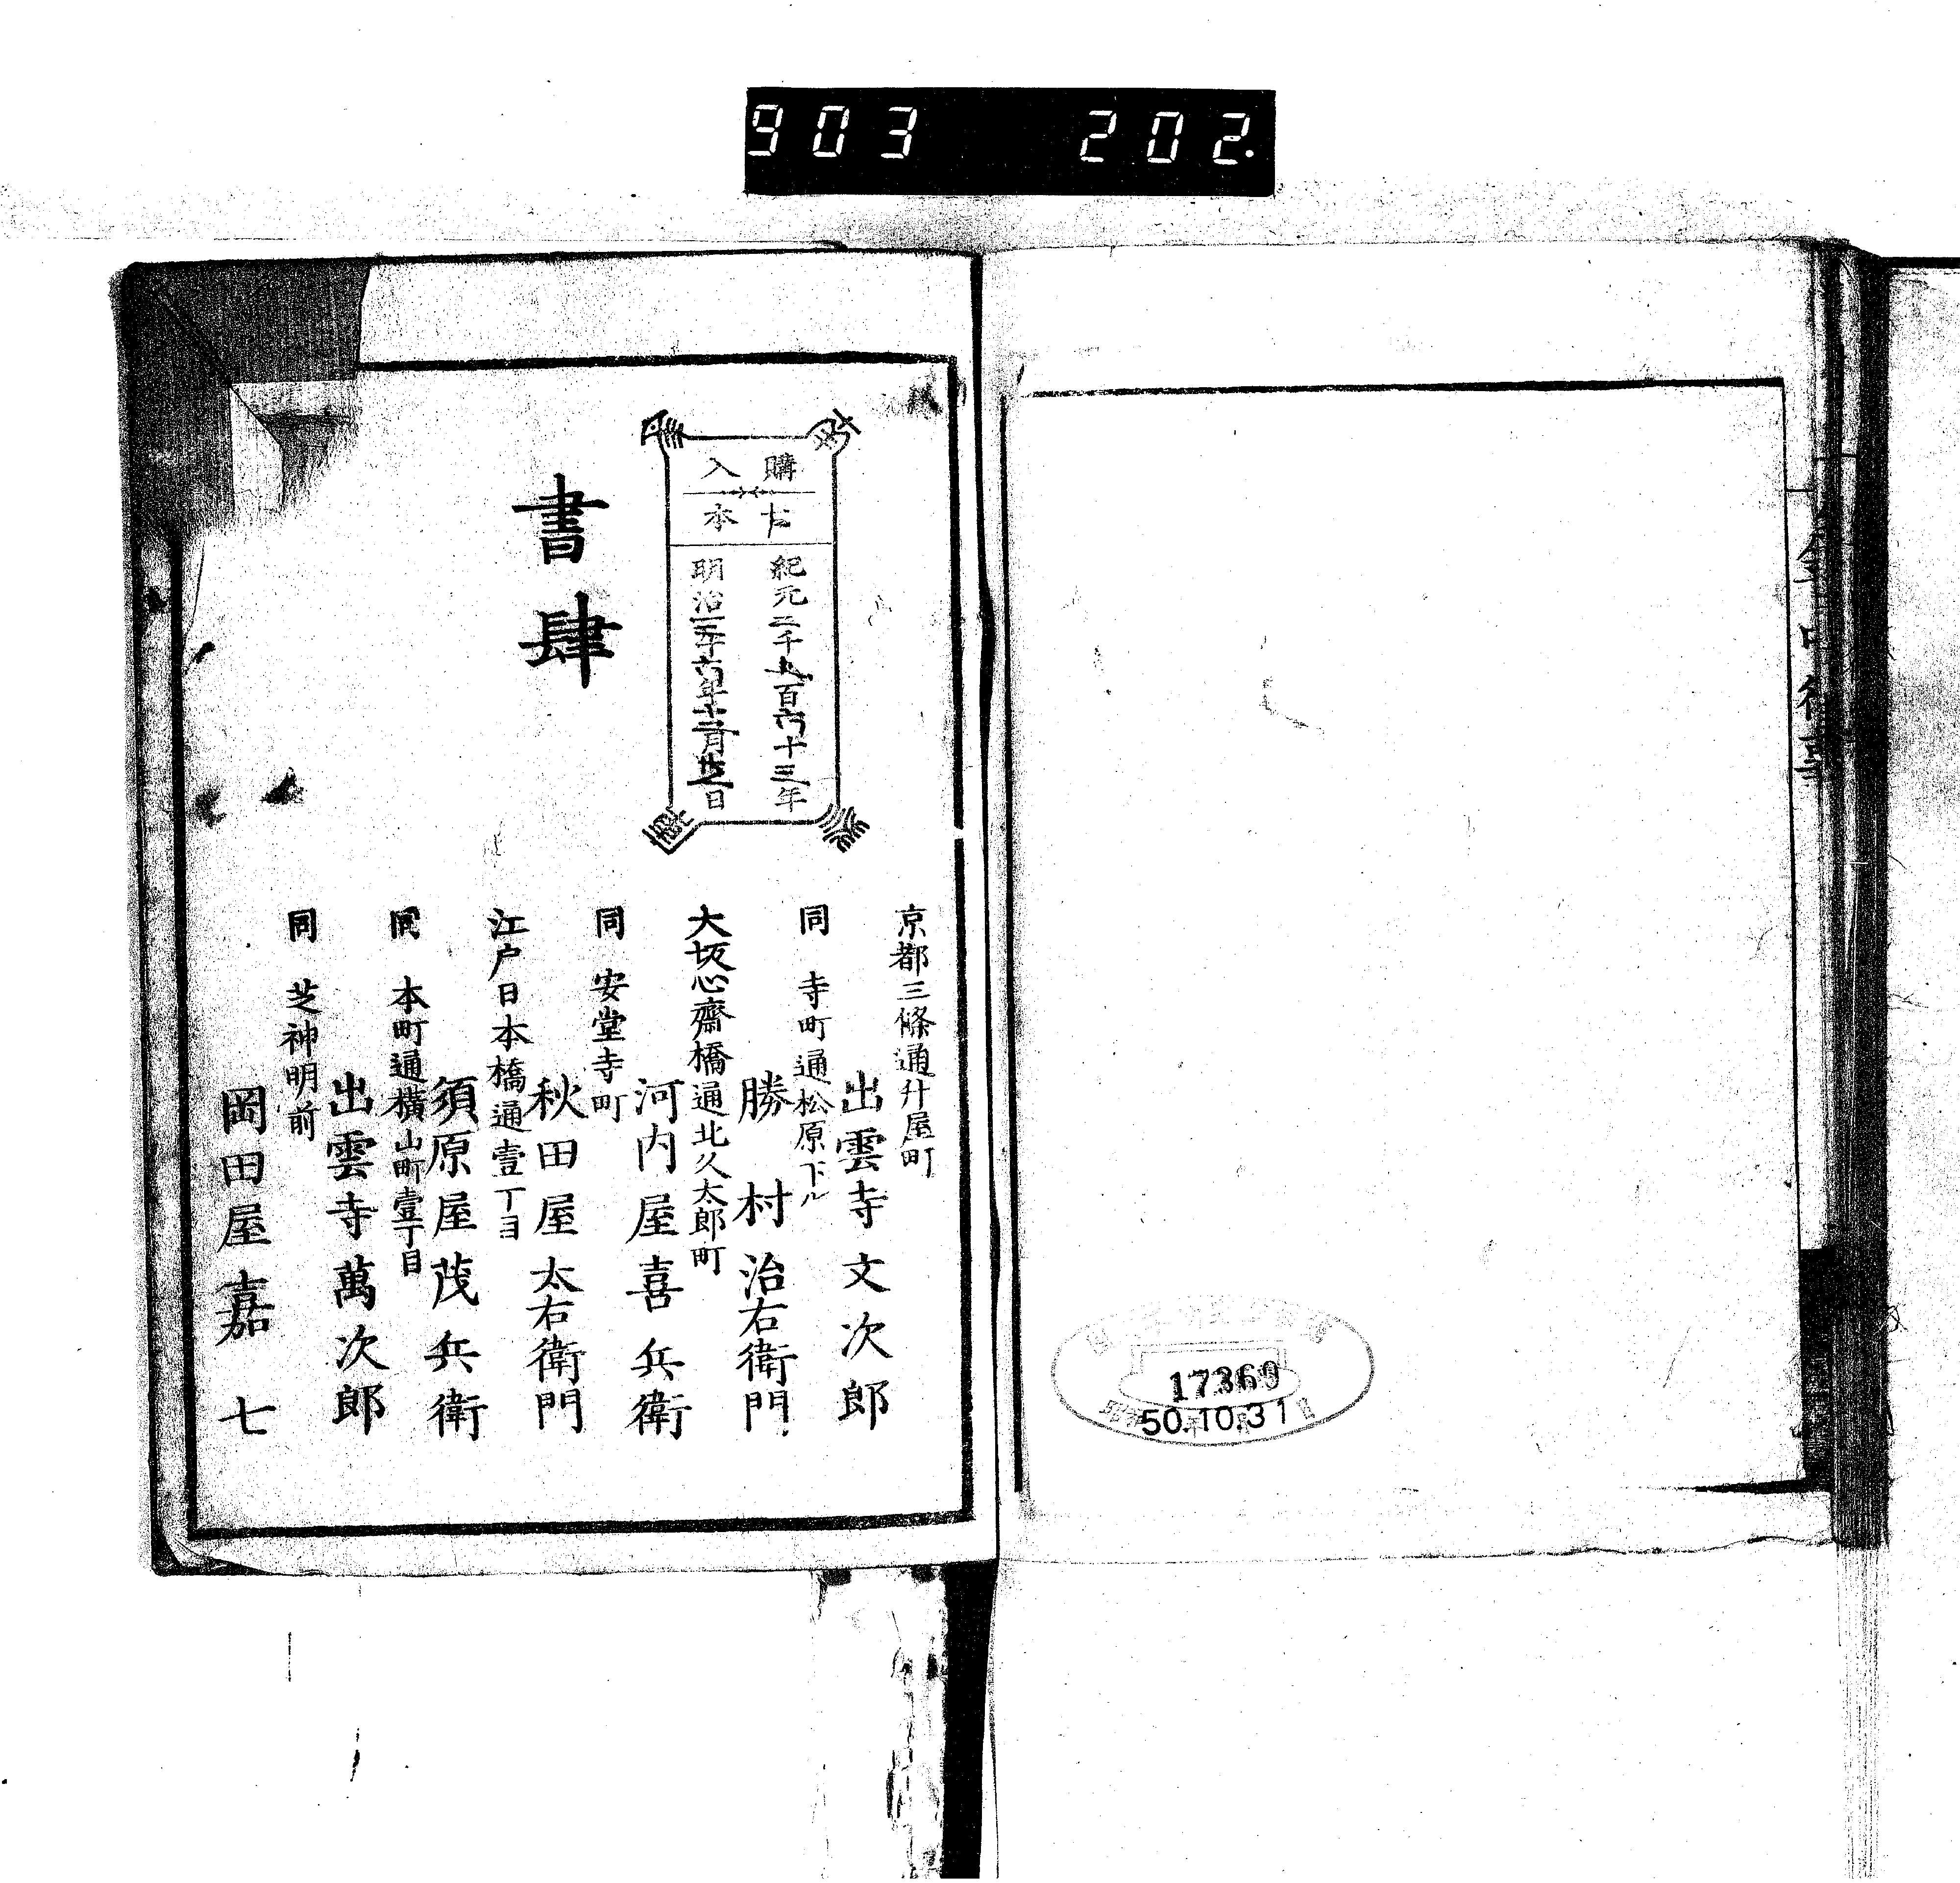 903 202.
17369
50.10.31
購入
本
紀元二千五百六十三年
明治三十六年十二月 日
書肆
京都三條通升屋町
出雲寺文次郎
同 寺町通松原下ル
勝村治右衛門
大坂心齋橋通北久太郎町
河内屋喜兵衛
同 安堂寺町
秋田屋太右衛門
江戸日本橋通壹丁目
須原屋茂兵衛
同 本町通横山町壹丁目
出雲寺萬次郎
同 芝神明前
岡田屋嘉七